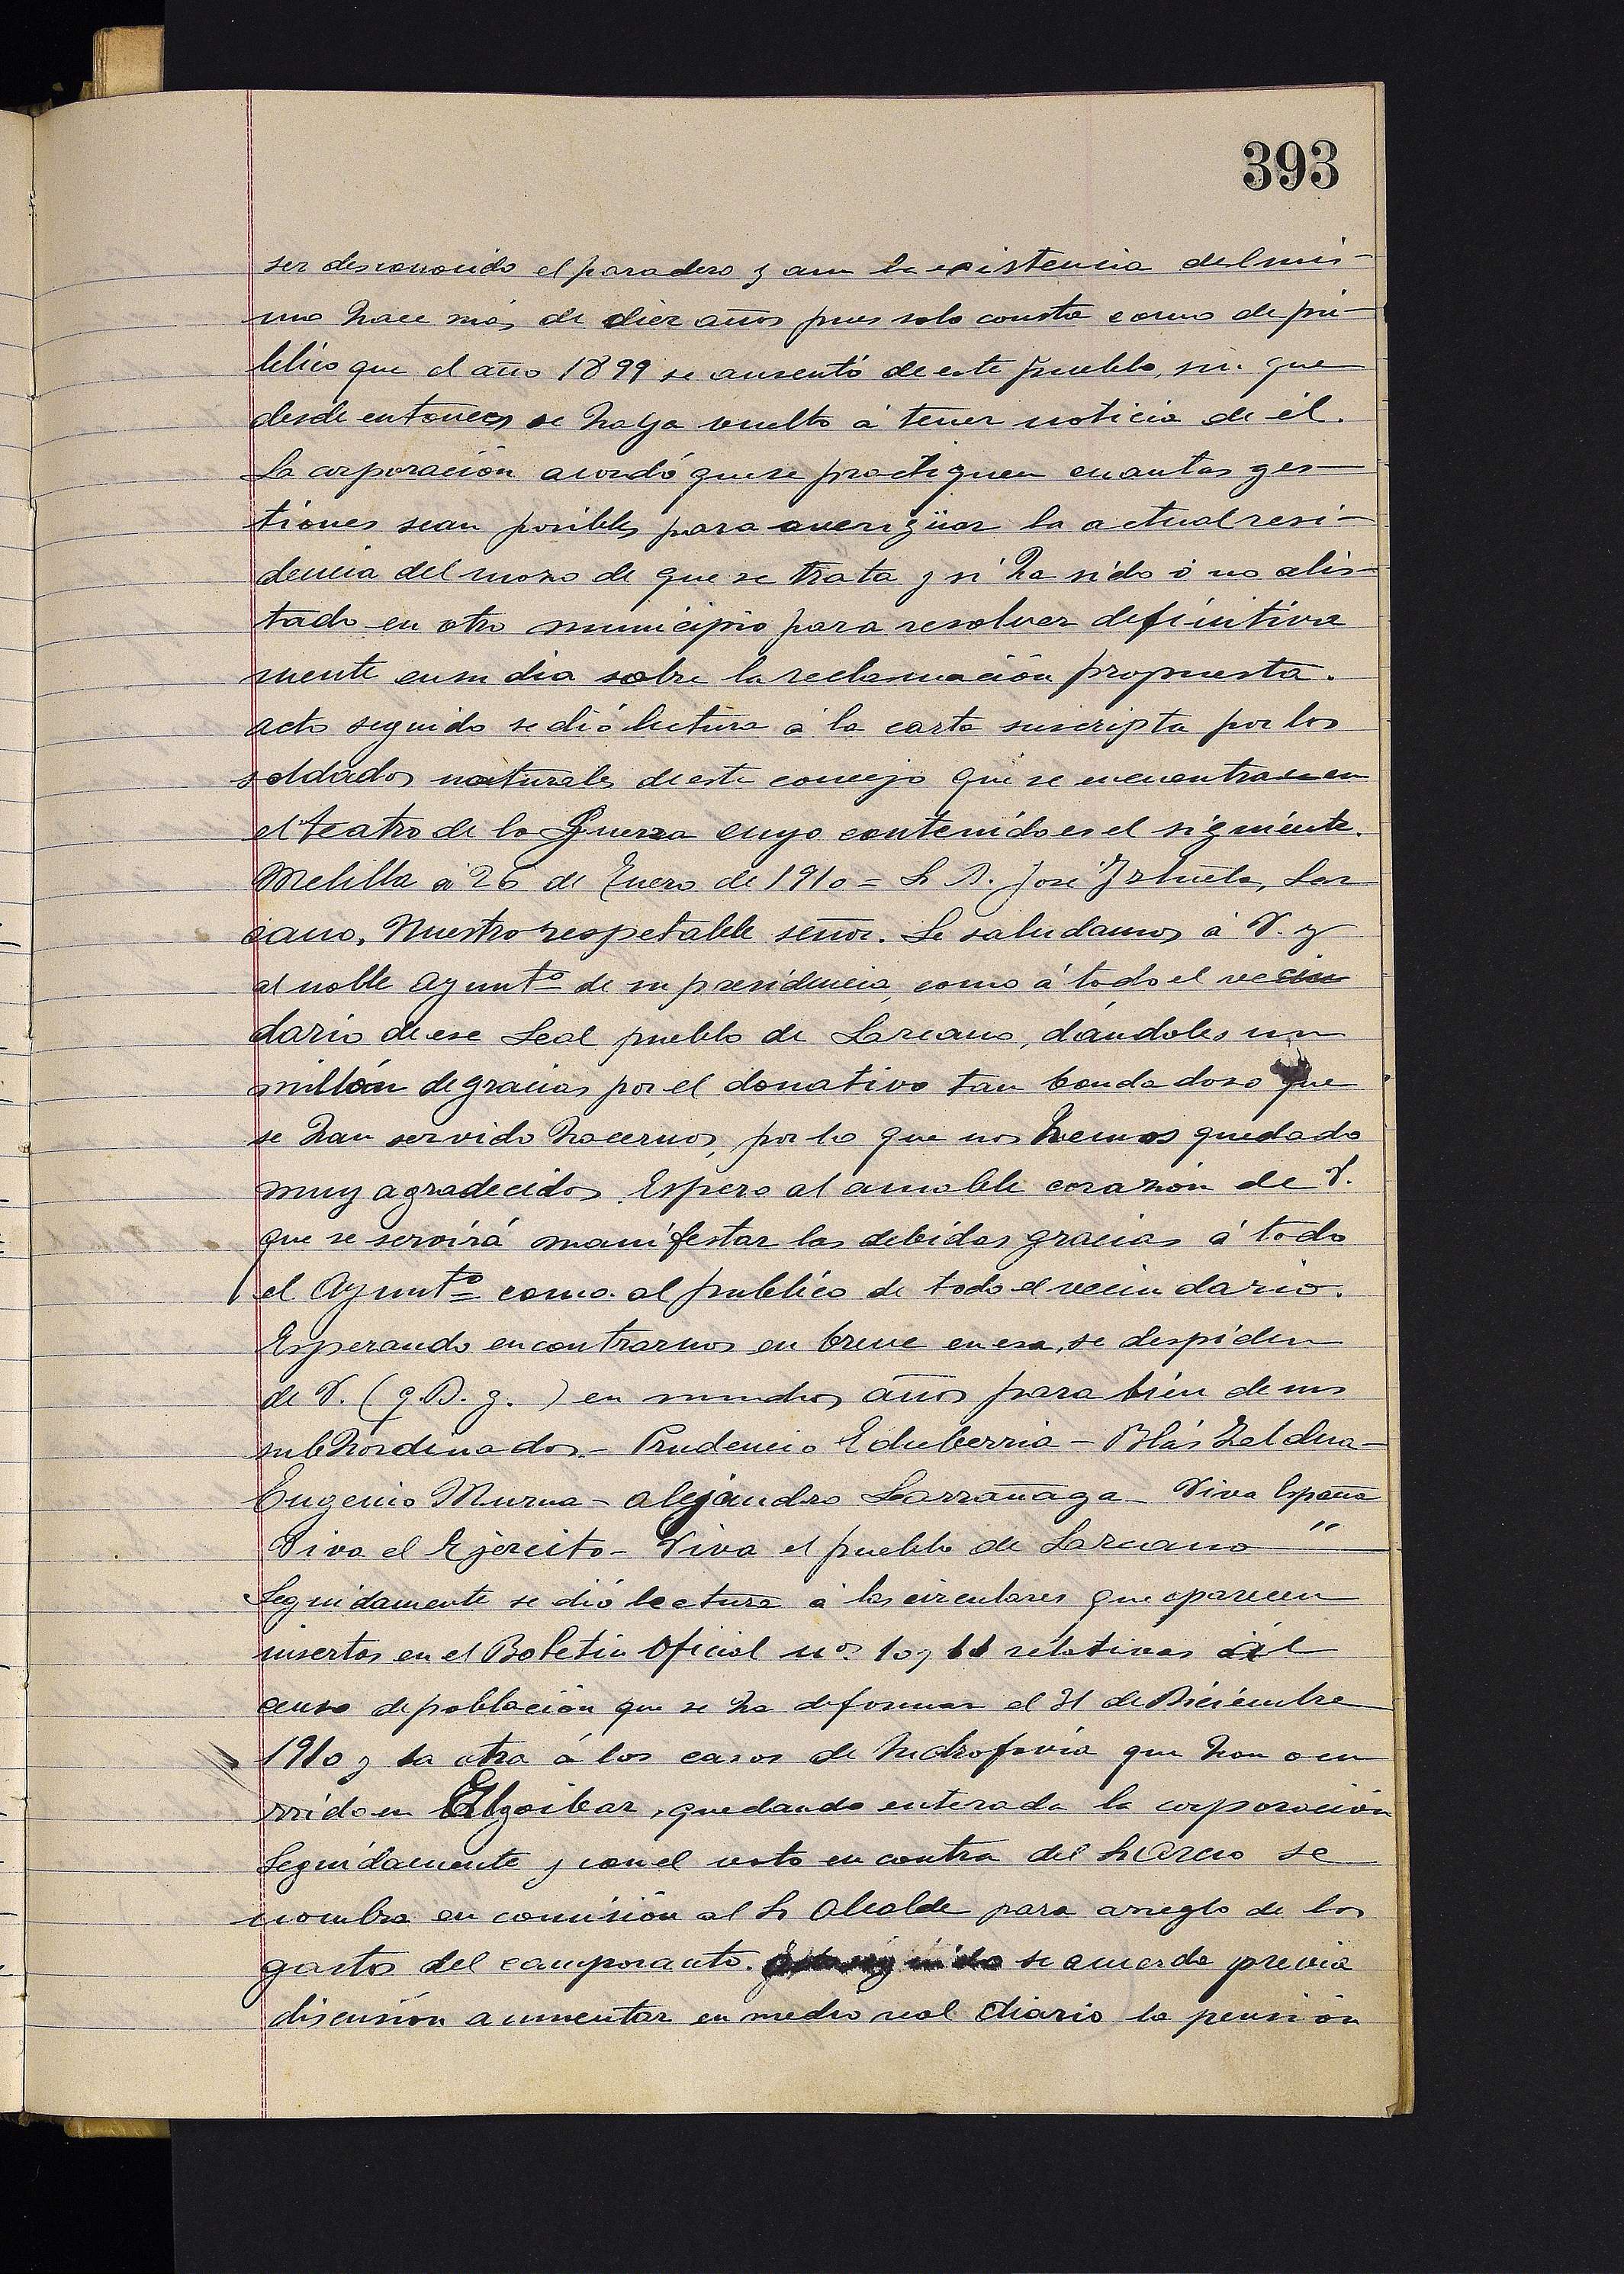 393
ser desconocido el paradero y aun la existencia del mis-
mo hace más de diez años pues solo consta como de pú-
blico que el año 1899 se ausentó de este pueblo, sin que
desde entonces se haya vuelto á tener noticia de él.
La corporación acordó que se practiquen cuantas ges-
tiones sean posibles para averigüar la actual resi-
dencia del mozo de que se trata y si ha sido ó no alis-
tado en otro municipio para resolver definitiva
mente en su dia sobre la reclamación propuesta.
Acto seguido se dió lectura á la carta suscripta por los
soldados naturales de este concejo que se encuentran en
el teatro de la Guerra cuyo contenido es el siguiente.
Melilla á 26 de Enero de 1910 = Sr D. José Irhueta, Laz
cano. Nuestro respetable señor. Le saludamos á V. y
al noble Ayuntº de su presidencia, como á todo el vecin
dario de ese Leal pueblo de Lazcano, dándoles un
millón de gracias por el donativo tan bondadoso que
se han servido hacernos, por lo que nos hemos quedado
muy agradecidos. Espero al amable corazón de V.
que se servirá manifestar las debidas gracias á todo
el Ayuntº como al publico de todo el vecindario.
Esperando encontrarnos en breve en esa, se despiden
de V. (q. D. g.) en muchos años para bién de sus
subhordinados - Prudencio Echeberria - Blás Zaldua -
Eugenio Murua - Alejandro Larrañaga - Viva España
Viva el Ejército - Viva el pueblo de Lazcano "
Seguidamente se dió lectura á las circulares que aparecen
insertas en el Boletin Oficial nos 10 y 11 relativas al
censo de población que se ha de formar el 31 de Diciembre
1910 y la otra á los casos de hidrofovia que han ocu
rrido en Elgoibar, quedando enterada la corporación
Seguidamente y con el voto en contra del Sr Arcio se
nombra en comisión al Sr Alcalde para arreglo de los
gastos del camposanto. se acuerda previa
discusión aumentar en medio real diario la pensión